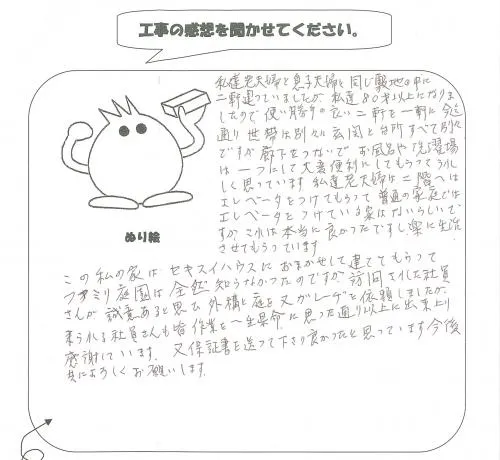 工事の感想を聞かせてください。
私達老夫婦と息子夫婦と同じ敷地の中に
二軒建っていましたが、私達80才以上になりま
したので使い勝手の良い二軒を一軒に 今迄
通り世帯は別々に玄関と台所すべて別々
ですが廊下をつないでお風呂や洗濯場
は一つにして大変便利にしてもらってうれ
しく思っています 私達老夫婦は二階へは
エレベータをつけてもらって普通の家庭では
エレベータをつけている家はないらしいで
すが、これは本当に良かったですし楽に生活
させてもらっています
ぬり絵
この私の家はセキスイハウスにおまかせして建ててもらって
ファミリ庭園は全然知らなかったのですが 訪問された社員
さんが誠意あると思い外構と庭を又ガレーヂと依頼しましたが、
来られる社員さんも皆作業を一生県命に思った通り以上に出来上り
感謝しています。又保証書を送って下さり良かったと思っています 今後
共によろしくお願いします。